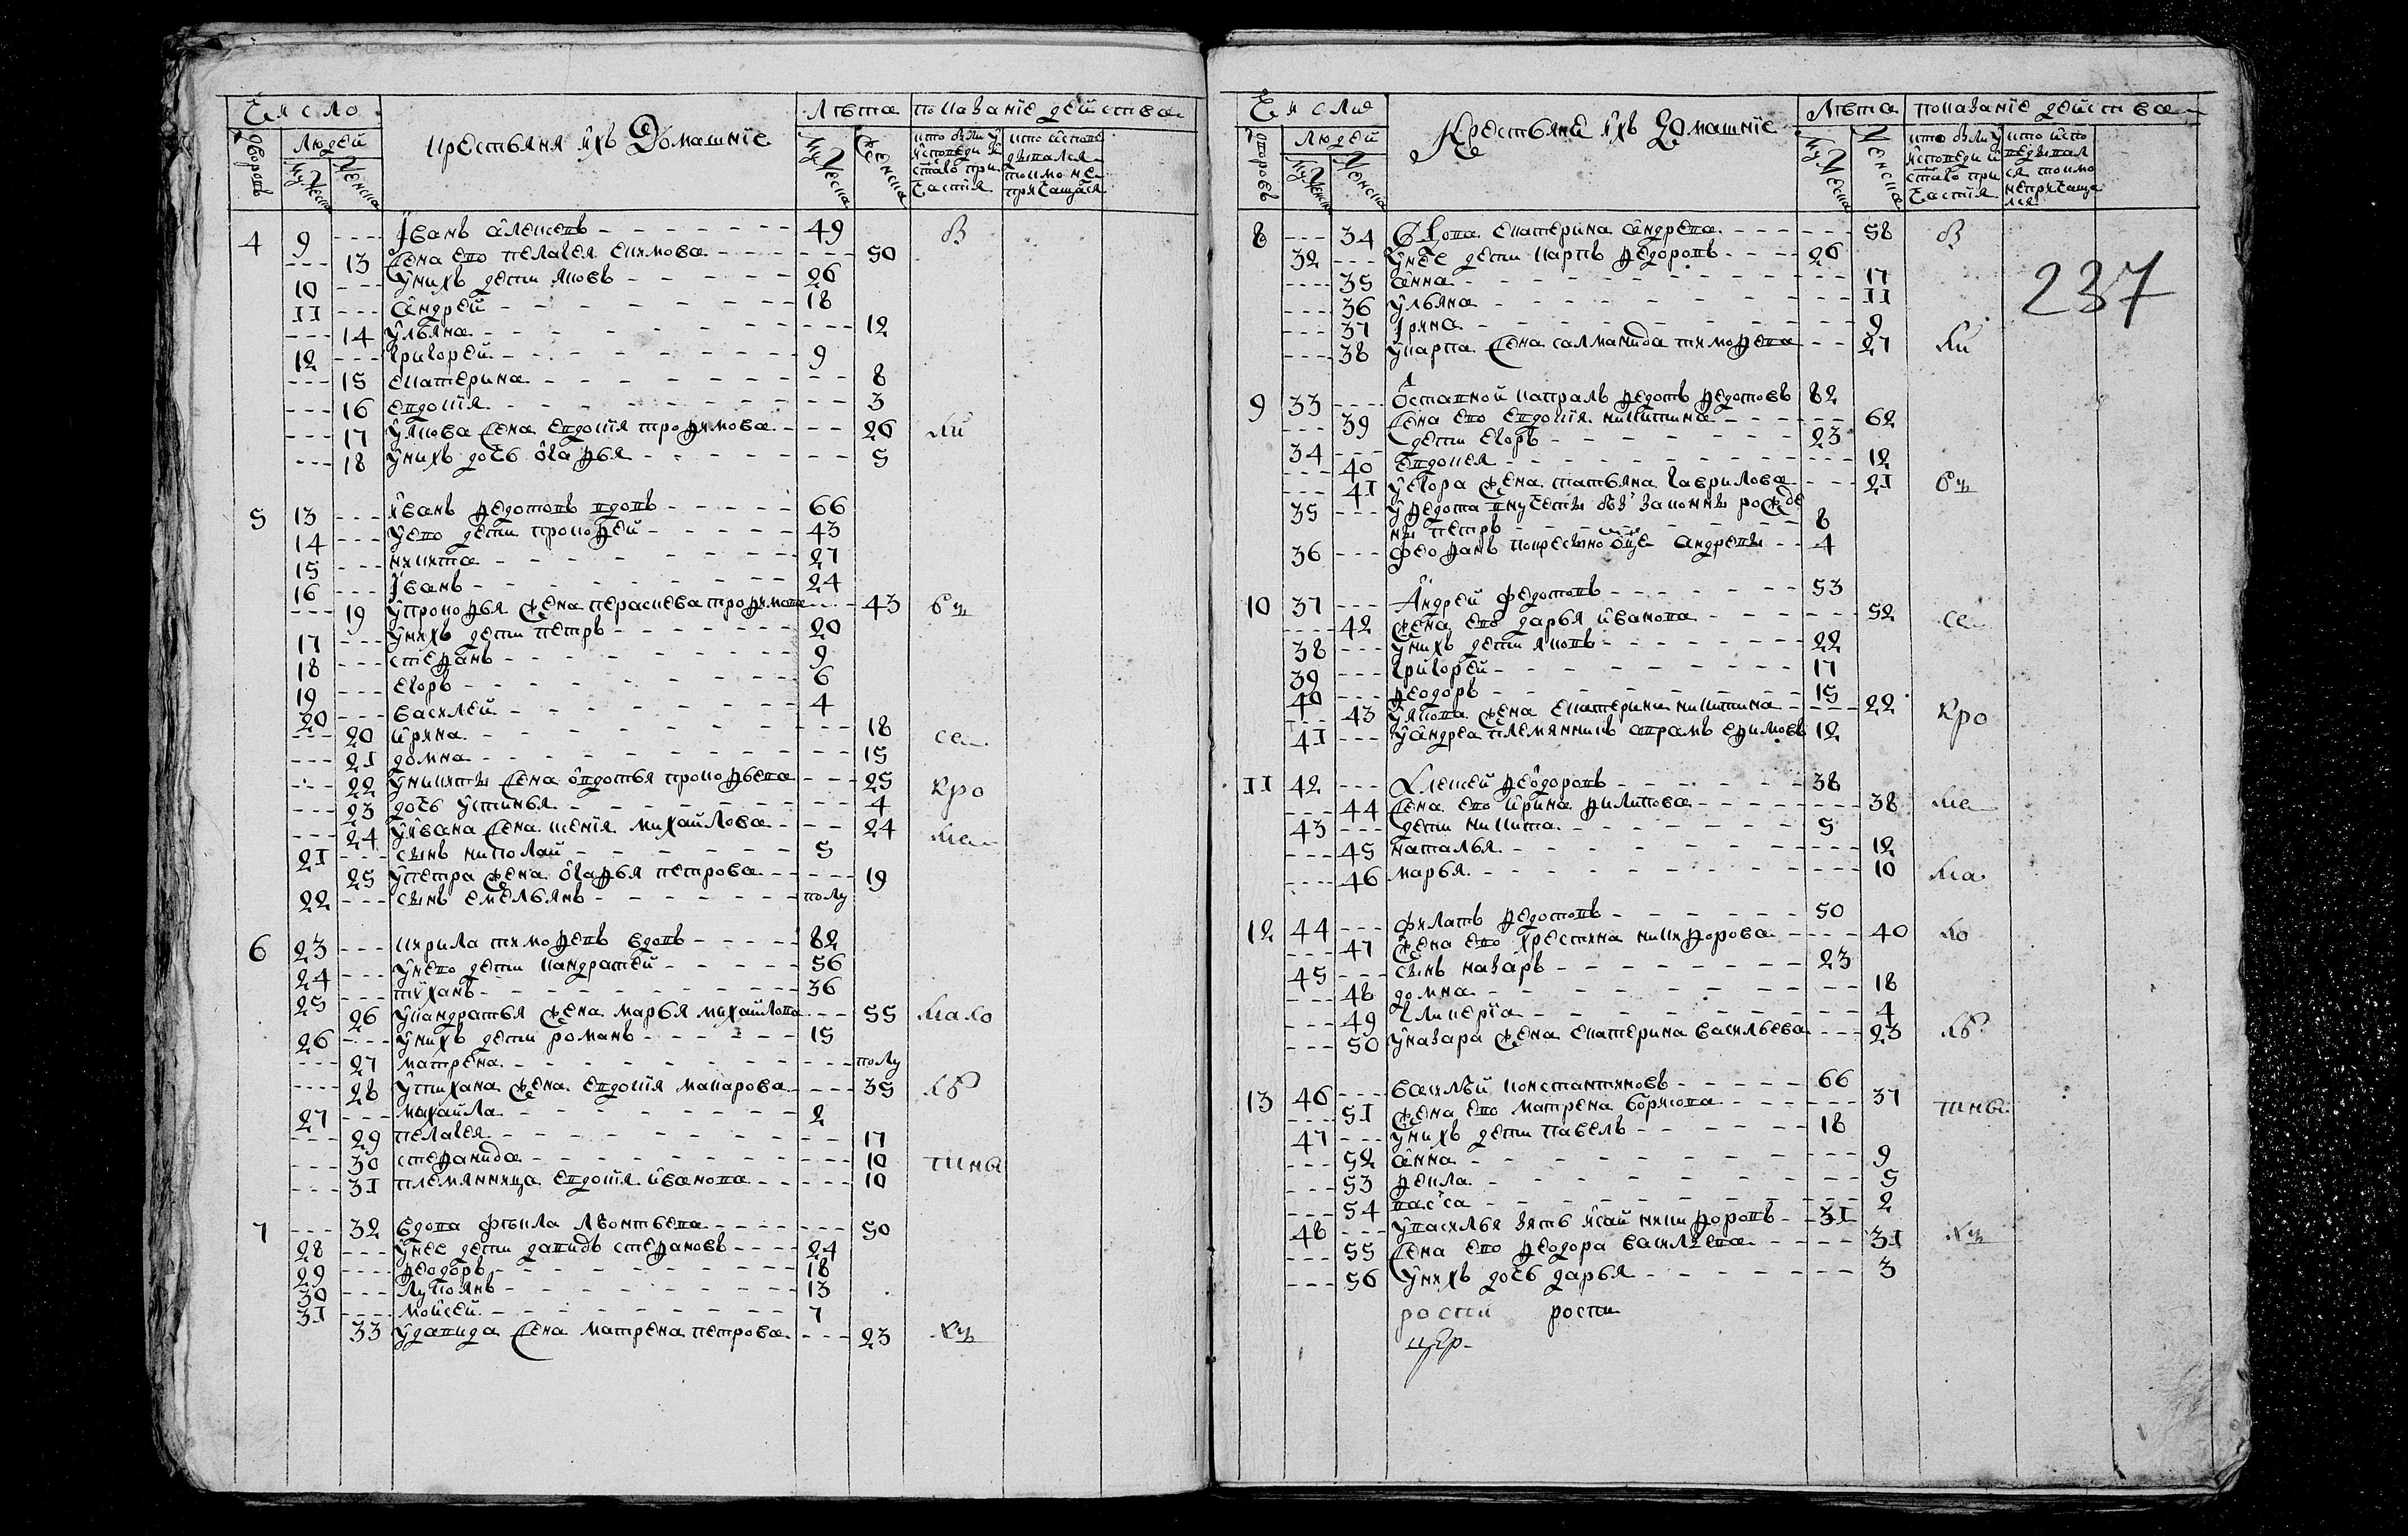 Число
Лѣта
показаніе действа
Дворовъ
Людей
Мужеска
Женска
крестьяня ихъ Домашніе
Мужеска
Женска
4 9 Іванъ алексеевъ 49
13 Жена ево пелагея екимова 50
10 У нихъ дети яковъ 26
11 андрей 18
14 ульяна 12
12 григорей 9
15 екатерина 8
16 евдокія 3
17 У якова жена евдокія трофимова 26
18 У нихъ дочь огафья 5
5 13 Іванъ федотовъ вдовъ 66
14 У ево дети прокофей 43
15 никита 27
16 Іванъ 24
19 У прокофья жена парасковья трофимова 43
17 У нихъ дети петръ 20
18 стефанъ 9
19 егоръ 6
20 василей 4
20 ирина 18
21 домна 15
22 У никиты жена овдотья прокофьева 25
23 дочь устинья 4
24 У ивана жена ксенія михайлова 24
21 сынъ николай 5
25 У петра жена огафья петрова 19
22 сынъ емельянъ полу
6 23 кирила тимофеевъ вдовъ 82
24 У нево дети кандратей 56
25 тиханъ 36
26 У кандратья жена марья михайлова 55
26 У нихъ дети романъ 15
27 матрена полу
28 У тихана жена евдокія макарова 35
27 михайла 2
29 пелагея 17
30 стефанида 10
31 племянница евдокія иванова 10
7 32 вдова фекла леонтьева 50
28 У нее дети давидъ стефановъ 24
29 феодоръ 18
30 лукоянъ 13
31 мойсей 7
33 У давида жена матрена петрова 23
Число
Лѣта
показаніе действа
Дворовъ
Людей
Мужеска
Женска
Крестьяне ихъ Домашніе
Мужеска
Женска
237
8 34 вдова екатерина андреева 58
32 У нее дети карпъ федоровъ 26
35 анна 17
36 ульяна 11
37 Ірина 9
38 У карпа жена саламанида тимофеева 27
9 33 Оставной капралъ федотъ федотовъ 82
39 Жена ево евдокія никитина 62
34 дети егоръ 23
40 евдокея 12
41 У егора жена татьяна гаврилова 21
35 У федота внучеты без законны рожде
ны петръ 8
36 феофанъ андреевы 4
10 37 Андрей федотовъ 53
42 жена ево дарья иванова 52
38 У нихъ дети яковъ 22
39 григорей 17
40 феодоръ 15
43 У якова жена екатерина никитина 22
41 У андреа племянникъ аврамъ ефимовъ 12
11 42 Алексей феодоровъ 38
44 Жена ево ирина филипова 38
43 дети никита 5
45 наталья 12
46 марья 10
12 44 филатъ федотовъ 50
47 жена ево хрестина никифорова 40
45 сынъ назаръ 23
48 домна 18
49 гликерія 4
50 У назара жена екатерина васильева 23
13 46 василей констаньтиновъ 66
51 жена ево матрена борисова 37
47 У нихъ дети павелъ 18
52 анна 9
53 фекла 5
54 васса 2
48 У василья зять исай никифоровъ 31
55 жена ево феодора василева 31
56 У нихъ дочь дарья 3